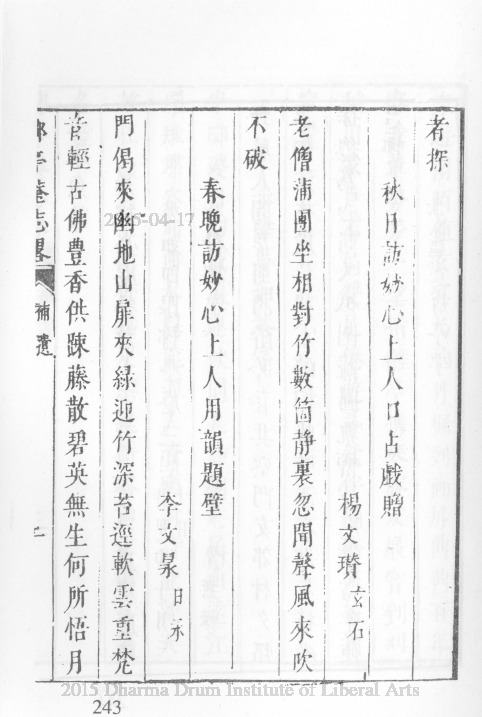 者探
秋日訪妙心上人口占戲贈
楊文瓚玄石
老僧蒲團坐相對竹數箇靜裏忽聞聲風來吹
不破
春晚訪妙心上人用韻題壁
李文
門偈來幽地山扉夾綠迎竹深苔逕軟雲重梵
音輕古佛豊香供踈藤散碧英無生何所悟月
庵志畧
補遺
2015-04-17
2015 Dharma Drum Institute of Liberal Arts
243